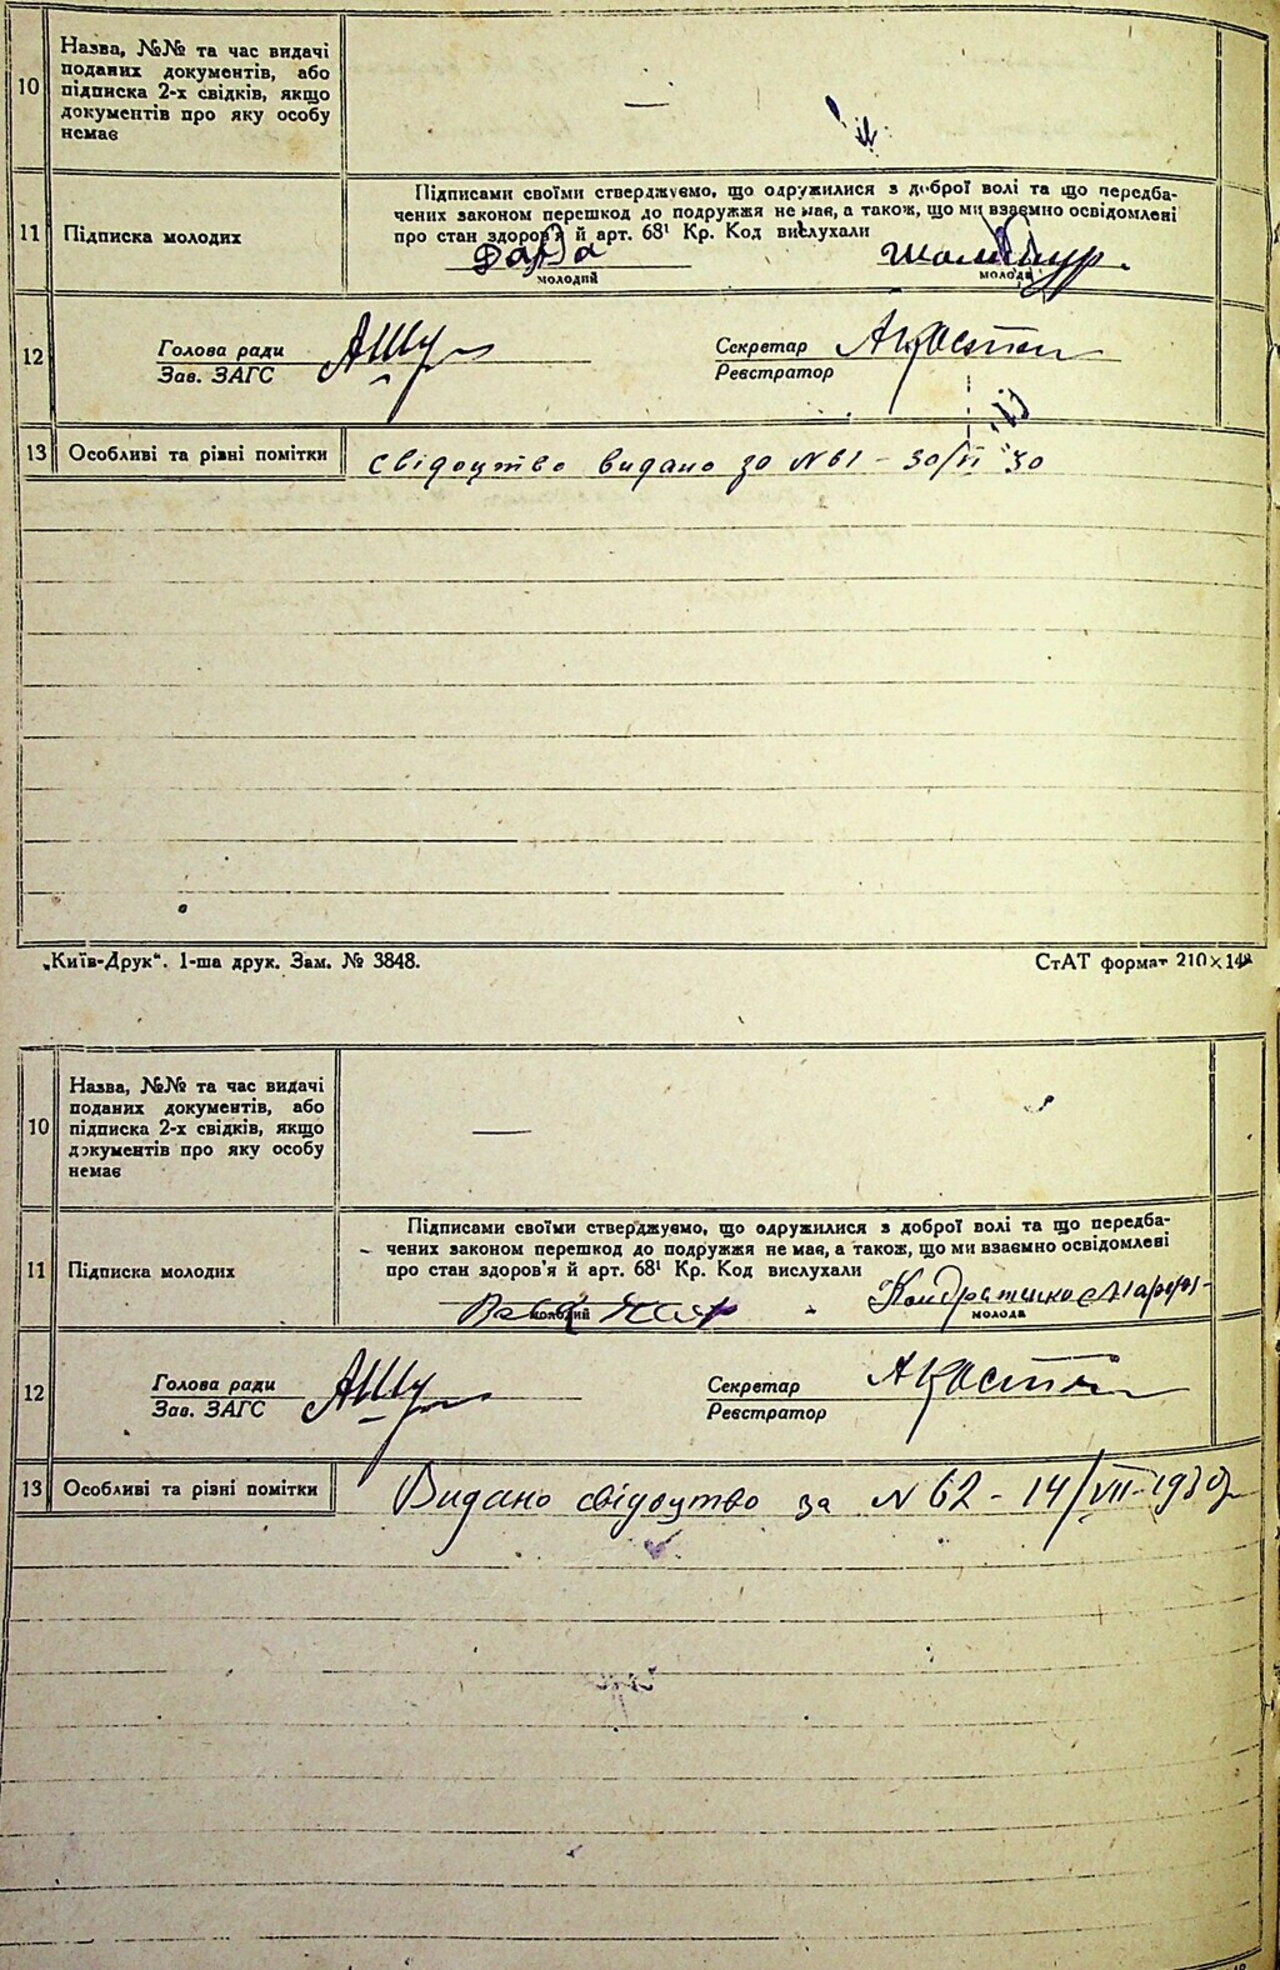 10
Назва, №№ та час видачі
поданих документів, або
підписка 2-х свідків, якщо
документів про яку особу
немає
11
Підписка молодих
Підписами своїми стверджуємо, що одружилися з доброї волі та що передба-
чених законом перешкод до подружжя не має, а також, що ми взаємно освідомлені
про стан здоров'я й арт. 68¹ Кр. Код вислухали
молодий
молода
12
Голова ради
Зав. ЗАГС
Секретар
Реєстратор
13
Особливі та різні помітки
Свідоцтво видано за N 61 - 30/VI 30
„Київ-Друк“. 1-ша друк. Зам. № 3848.
СтАТ формат 210×148
10
Назва, №№ та час видачі
поданих документів, або
підписка 2-х свідків, якщо
документів про яку особу
немає
11
Підписка молодих
Підписами своїми стверджуємо, що одружилися з доброї волі та що передба-
чених законом перешкод до подружжя не має, а також, що ми взаємно освідомлені
про стан здоров'я й арт. 68¹ Кр. Код вислухали
молодий
Кондратенко
молода
12
Голова ради
Зав. ЗАГС
Секретар
Реєстратор
13
Особливі та різні помітки
Видано свідоцтво за N 62 - 14/VII-1930р